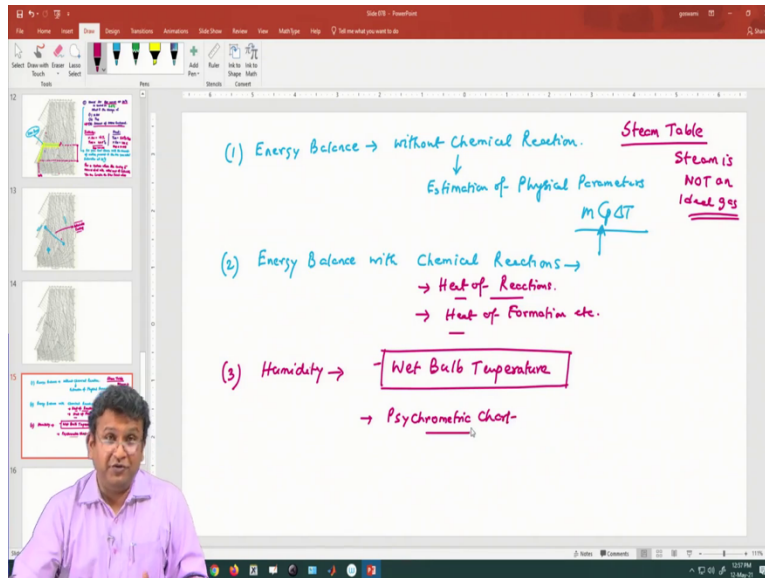 Slide 078 - PowerPoint
goswami
File Home Insert Draw Design Transitions Animations Slide Show Review View MathType Help Tell me what you want to do
Select Draw with Touch Eraser Lasso Select Add Pen Ruler Ink to Shape Ink to Math
Tools Pens Stencils Convert
12
13
14
15
16
(1) Energy Balance → without Chemical Reaction.
Steam Table
Steam is
NOT an
Ideal gas
Estimation of Physical Parameters
m Cp ΔT
(2) Energy Balance with Chemical Reactions →
→ Heat of Reactions.
→ Heat of Formation etc.
(3) Humidity → - Wet Bulb Temperature
→ Psychrometric Chart-
Notes Comments 111%
12:37 PM
12-May-21